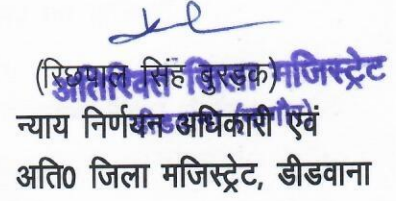 (रिछपाल सिंह बुरडक)
अतिरिक्त जिला मजिस्ट्रेट
न्याय निर्णयन अधिकारी एवं
अति0 जिला मजिस्ट्रेट, डीडवाना